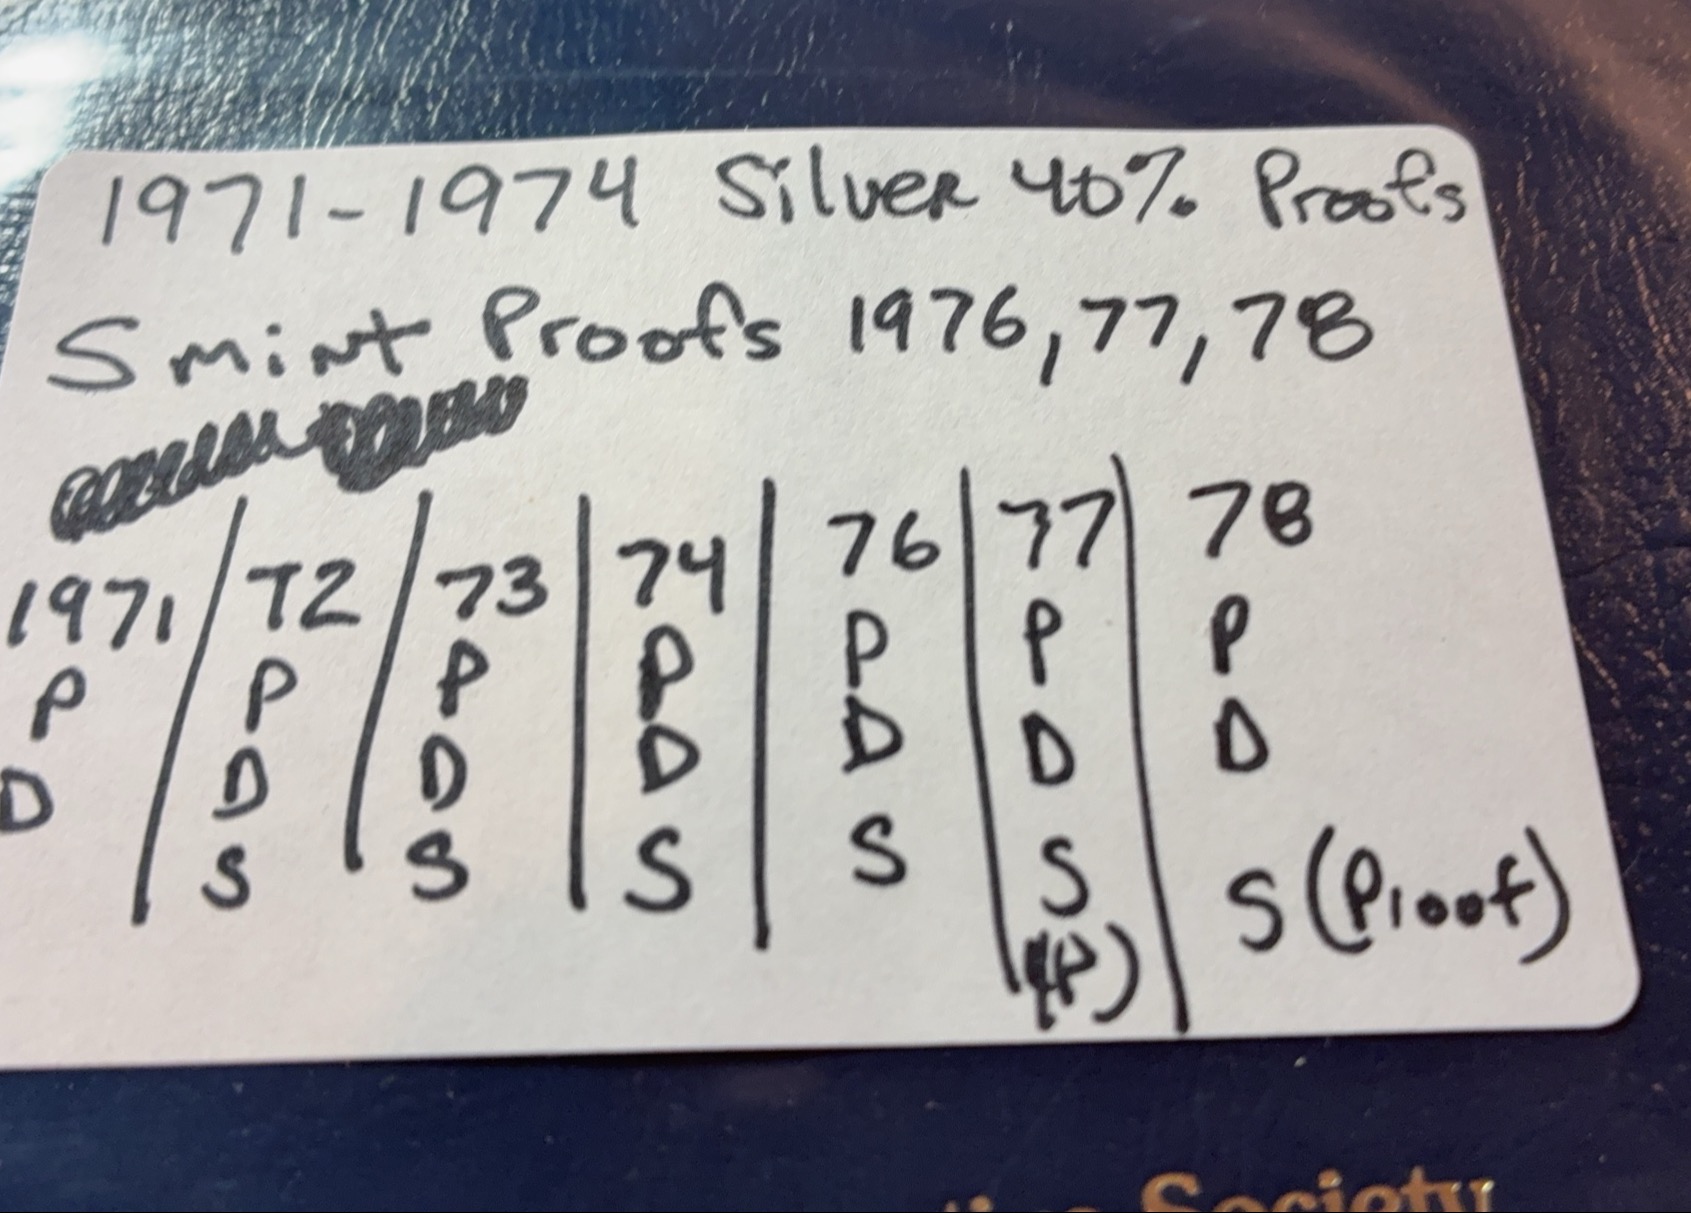 1971-1974 Silver 40% Proofs
S mint Proofs 1976, 77, 78
1971 72 73 74 76 77 78
P P P P P P P
D D D D D D D
S S S S S S (Proof)
(P)
Society